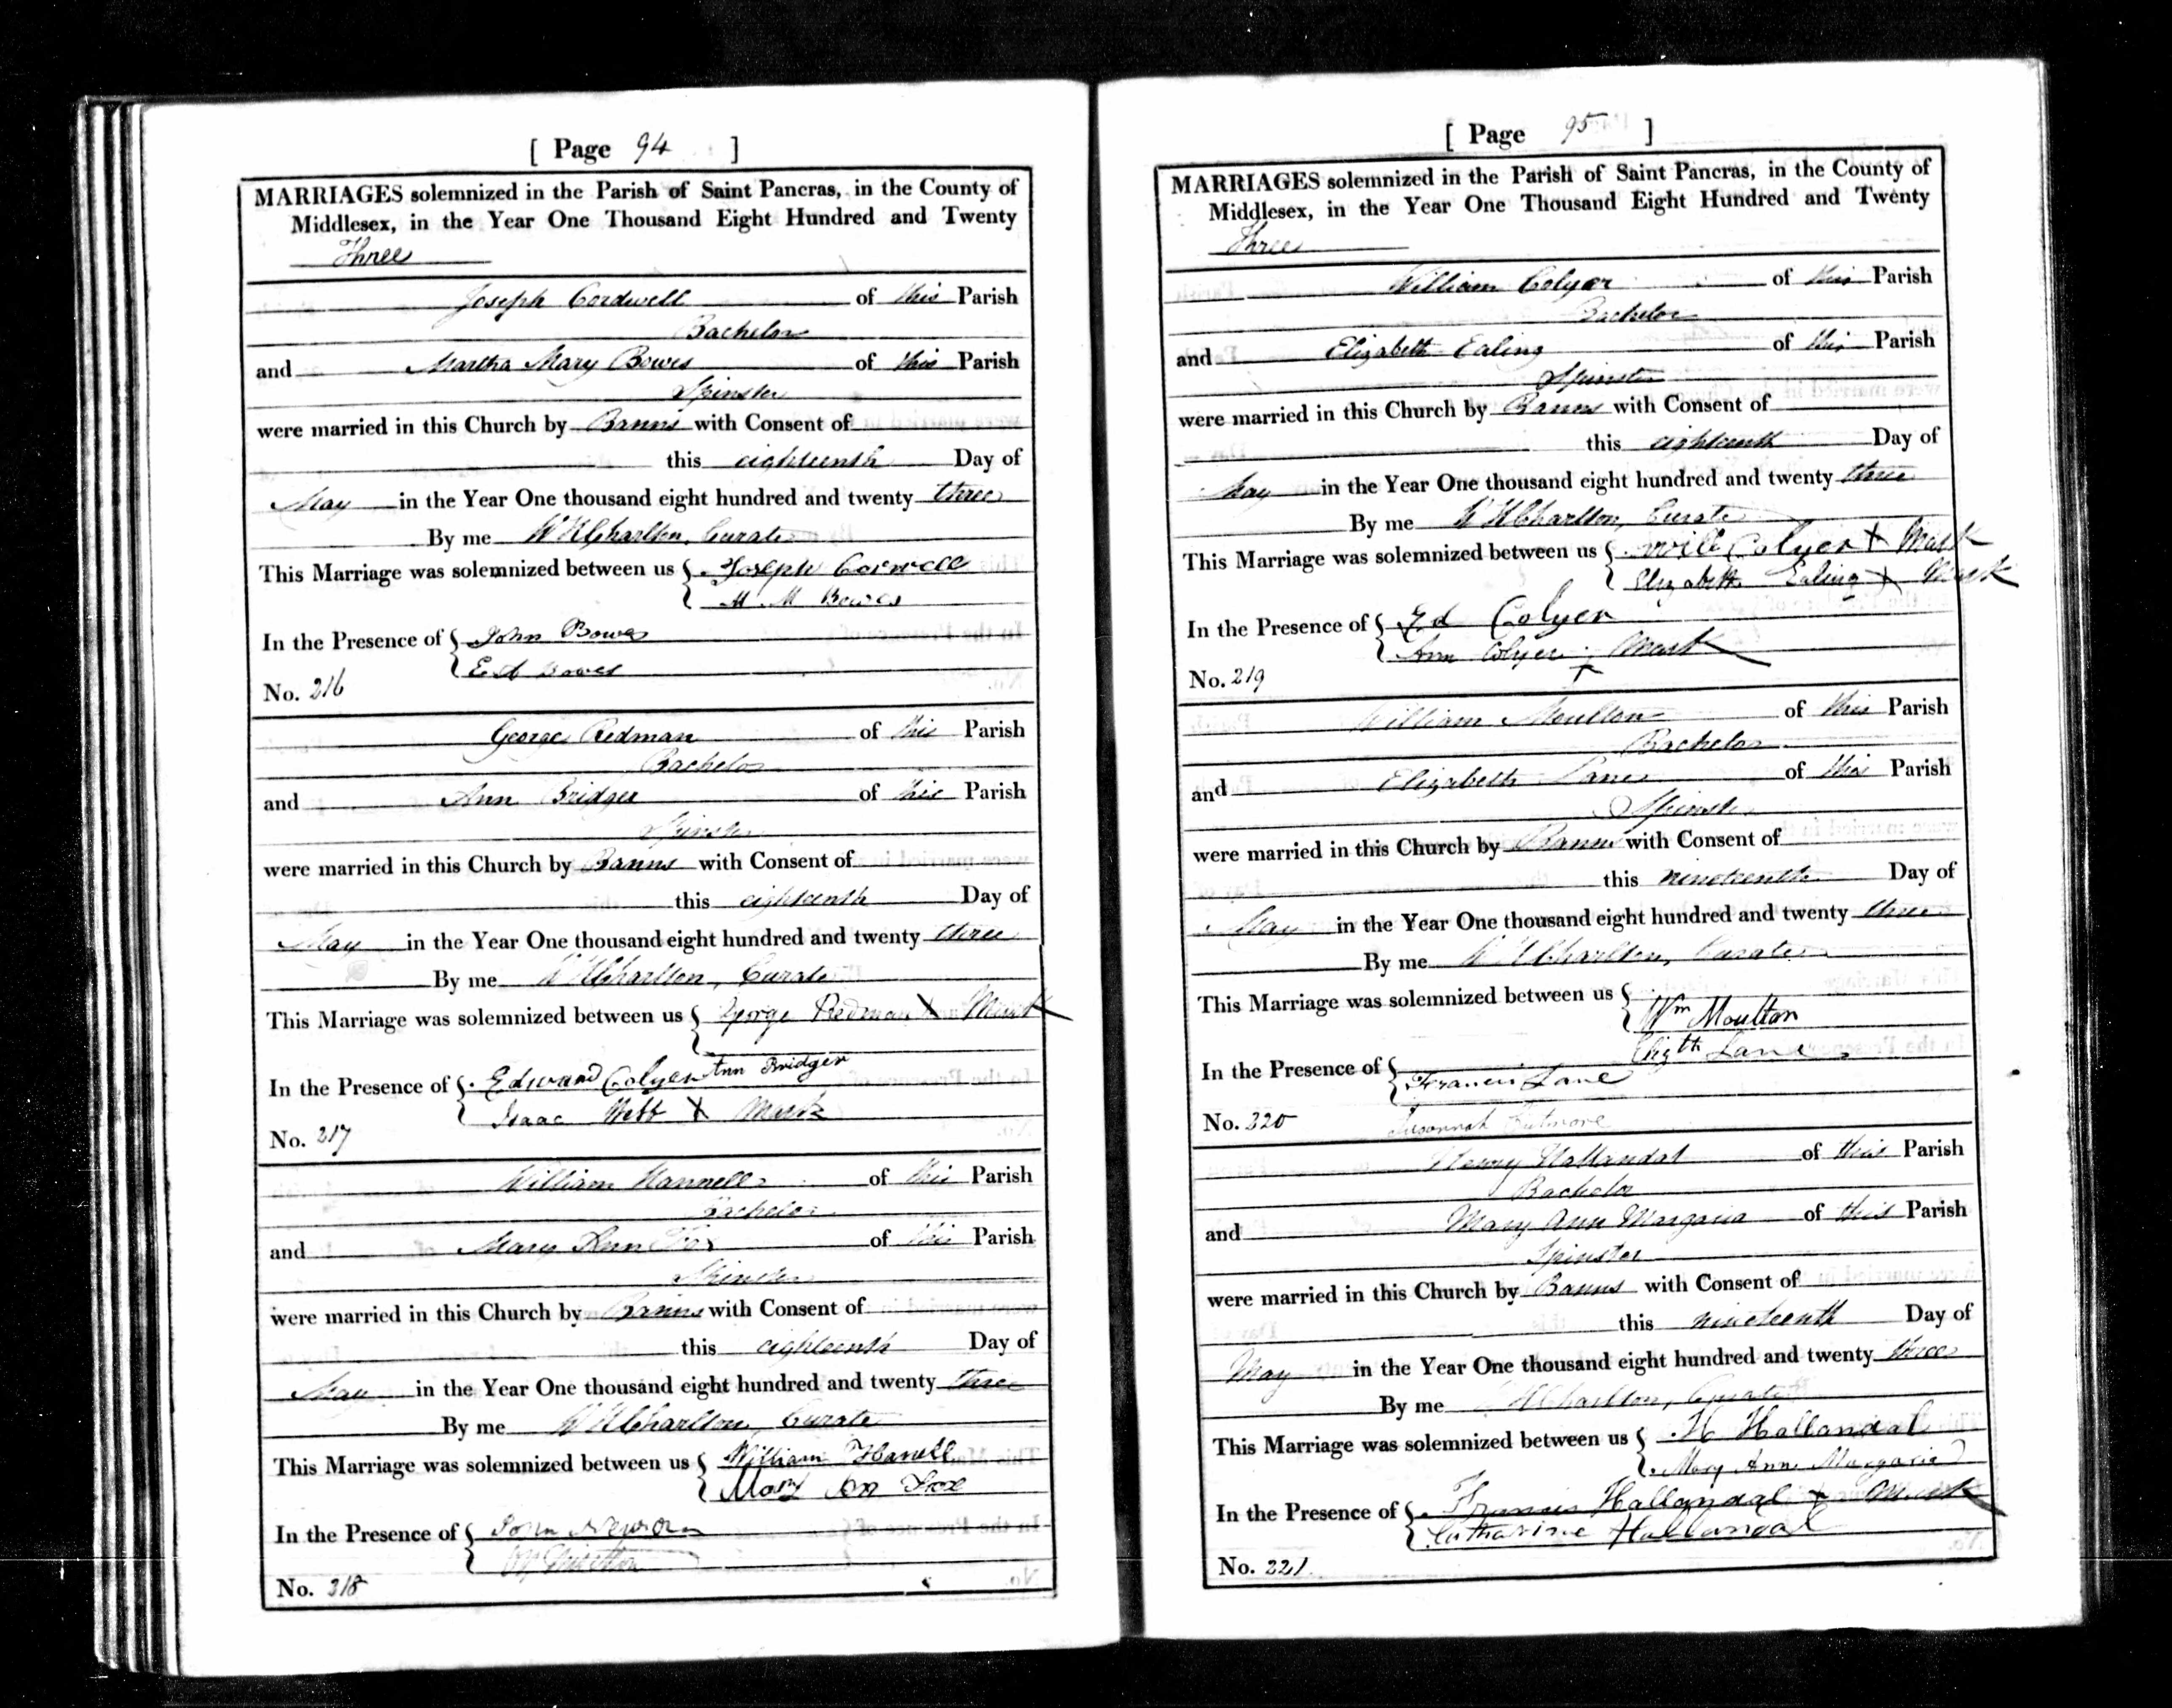 [ Page 94 ]
MARRIAGES solemnized in the Parish of Saint Pancras, in the County of
Middlesex, in the Year One Thousand Eight Hundred and Twenty
Three
Joseph Cordwell of this Parish
Bachelor
and Martha Mary Bowes of this Parish
Spinster
were married in this Church by Banns with Consent of
this eighteenth Day of
May in the Year One thousand eight hundred and twenty three
By me W H Charlton, Curate
This Marriage was solemnized between us { Joseph Corwell
M M Bowes
In the Presence of { John Bowes
E A Bowes
No. 216
George Redman of this Parish
Bachelor
and Ann Bridger of this Parish
Spinster
were married in this Church by Banns with Consent of
this eighteenth Day of
May in the Year One thousand eight hundred and twenty three
By me W H Charlton, Curate
This Marriage was solemnized between us { George Redman X Mark
Ann Bridger
In the Presence of { Edward Colyer
Isaac Webb X Mark
No. 217
William Hannell of this Parish
Bachelor
and Mary Ann Fox of this Parish
Spinster
were married in this Church by Banns with Consent of
this eighteenth Day of
May in the Year One thousand eight hundred and twenty three
By me W H Charlton, Curate
This Marriage was solemnized between us { William Hanell
Mary An Fox
In the Presence of { John
No. 218
[ Page 95 ]
MARRIAGES solemnized in the Parish of Saint Pancras, in the County of
Middlesex, in the Year One Thousand Eight Hundred and Twenty
Three
William Colyer of this Parish
Bachelor
and Elizabeth Ealing of this Parish
Spinster
were married in this Church by Banns with Consent of
this eighteenth Day of
May in the Year One thousand eight hundred and twenty three
By me W H Charlton, Curate
This Marriage was solemnized between us { Will Colyer X Mark
Elizabeth Ealing X Mark
In the Presence of { Ed Colyer
Ann Colyer X Mark
No. 219
William Moulton of this Parish
Bachelor
and Elizabeth Lane of this Parish
Spinster
were married in this Church by Banns with Consent of
this nineteenth Day of
May in the Year One thousand eight hundred and twenty three
By me W H Charlton, Curate
This Marriage was solemnized between us {
Wm Moulton
Elizth Lane
In the Presence of { Francis Lane
Susannah
No. 220
Henry Hallandal of this Parish
Bachelor
and Mary Ann Margaria of this Parish
Spinster
were married in this Church by Banns with Consent of
this nineteenth Day of
May in the Year One thousand eight hundred and twenty three
By me W H Charlton, Curate
This Marriage was solemnized between us { H Hallandal
Mary Ann Margaria
In the Presence of { Francis Hallandal X Mark
Catharine Hallandal
No. 221